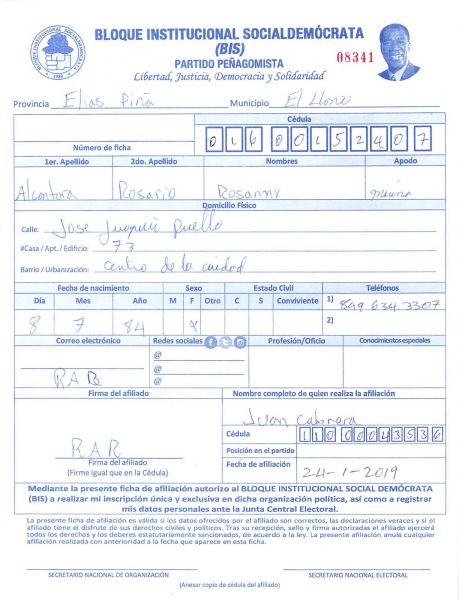 BLOQUE INSTITUCIONAL SOCIALDEMÓCRATA
(BIS)
PARTIDO PEÑAGOMISTA
Libertad, Justicia, Democracia y Solidaridad
08341
BLOQUE INSTITUCIONAL SOCIALDEMOCRATA
Provincia Elias Piña Municipio El Llano
Número de ficha Cédula 01600152407
1er. Apellido 2do. Apellido Nombres Apodo
Alcantara Rosario Rosanny
Domicilio Físico
Calle: Jose Juaquin Puello
#Casa / Apt. / Edificio: 73
Barrio / Urbanización: centro de la ciudad
Fecha de nacimiento Sexo Estado Civil Teléfonos
Día Mes Año M F Otro C S Conviviente 1) 849 634 3307
8 7 84 X 2)
Correo electrónico Redes sociales Profesión/Oficio Conocimientos especiales
@
@
RAR @
Firma del afiliado Nombre completo de quien realiza la afiliación
Juan Cabrera
Cédula 11000043536
Posición en el partido
RAR
Firma del afiliado
(Firme igual que en la Cédula)
Fecha de afiliación 24-1-2019
Mediante la presente ficha de afiliación autorizo al BLOQUE INSTITUCIONAL SOCIAL DEMÓCRATA
(BIS) a realizar mi inscripción única y exclusiva en dicha organización política, así como a registrar
mis datos personales ante la Junta Central Electoral.
La presente ficha de afiliación es válida si los datos ofrecidos por el afiliado son correctos, las declaraciones veraces y si el
afiliado tiene el disfrute de sus derechos civiles y políticos. Tras su recepción, sello y firma autorizadas el afiliado ejercerá
todos los derechos y los deberes estatutariamente sancionados, de acuerdo a la ley. La presente afiliación anula cualquier
afiliación realizada con anterioridad a la fecha que aparece en esta ficha.
SECRETARIO NACIONAL DE ORGANIZACIÓN SECRETARIO NACIONAL ELECTORAL
(Anexar copia de cédula del afiliado)